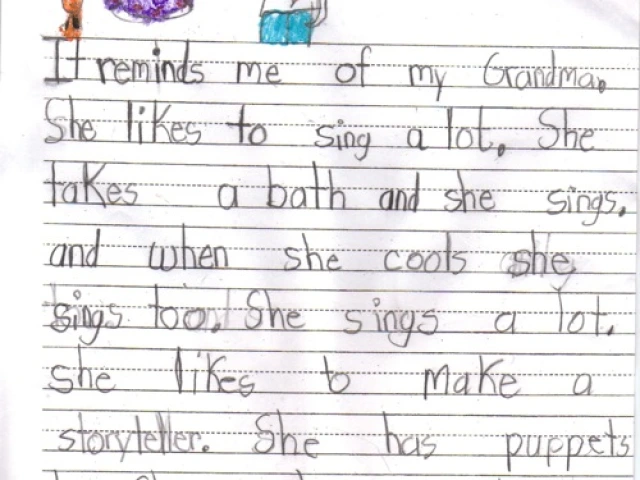 It reminds me of my Grandma.
She likes to sing a lot. She
takes a bath and she sings.
and when she cools she
sings too. She sings a lot.
she likes to make a
storyteller. She has puppets